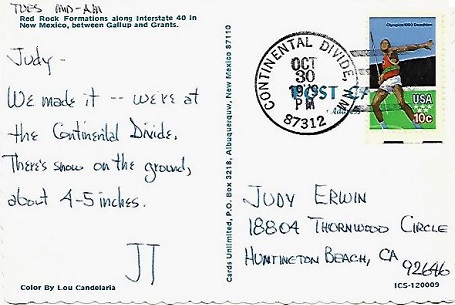 TUES MID-AM
Red Rock Formations along Interstate 40 in
New Mexico, between Gallup and Grants.
Judy-
We made it -- we're at
the Continental Divide.
There's snow on the ground,
about 4-5 inches.
JT
Color By Lou Candelaria
Cards Unlimited, P.O. Box 3218, Albuquerque, New Mexico 87110
CONTINENTAL DIVIDE, NM
OCT
30
1979
PM
87312
POST
Address
Olympics 1980 Decathlon
USA
10c
JUDY ERWIN
18804 THORNWOOD CIRCLE
HUNTINGTON BEACH, CA
92646
ICS-120009